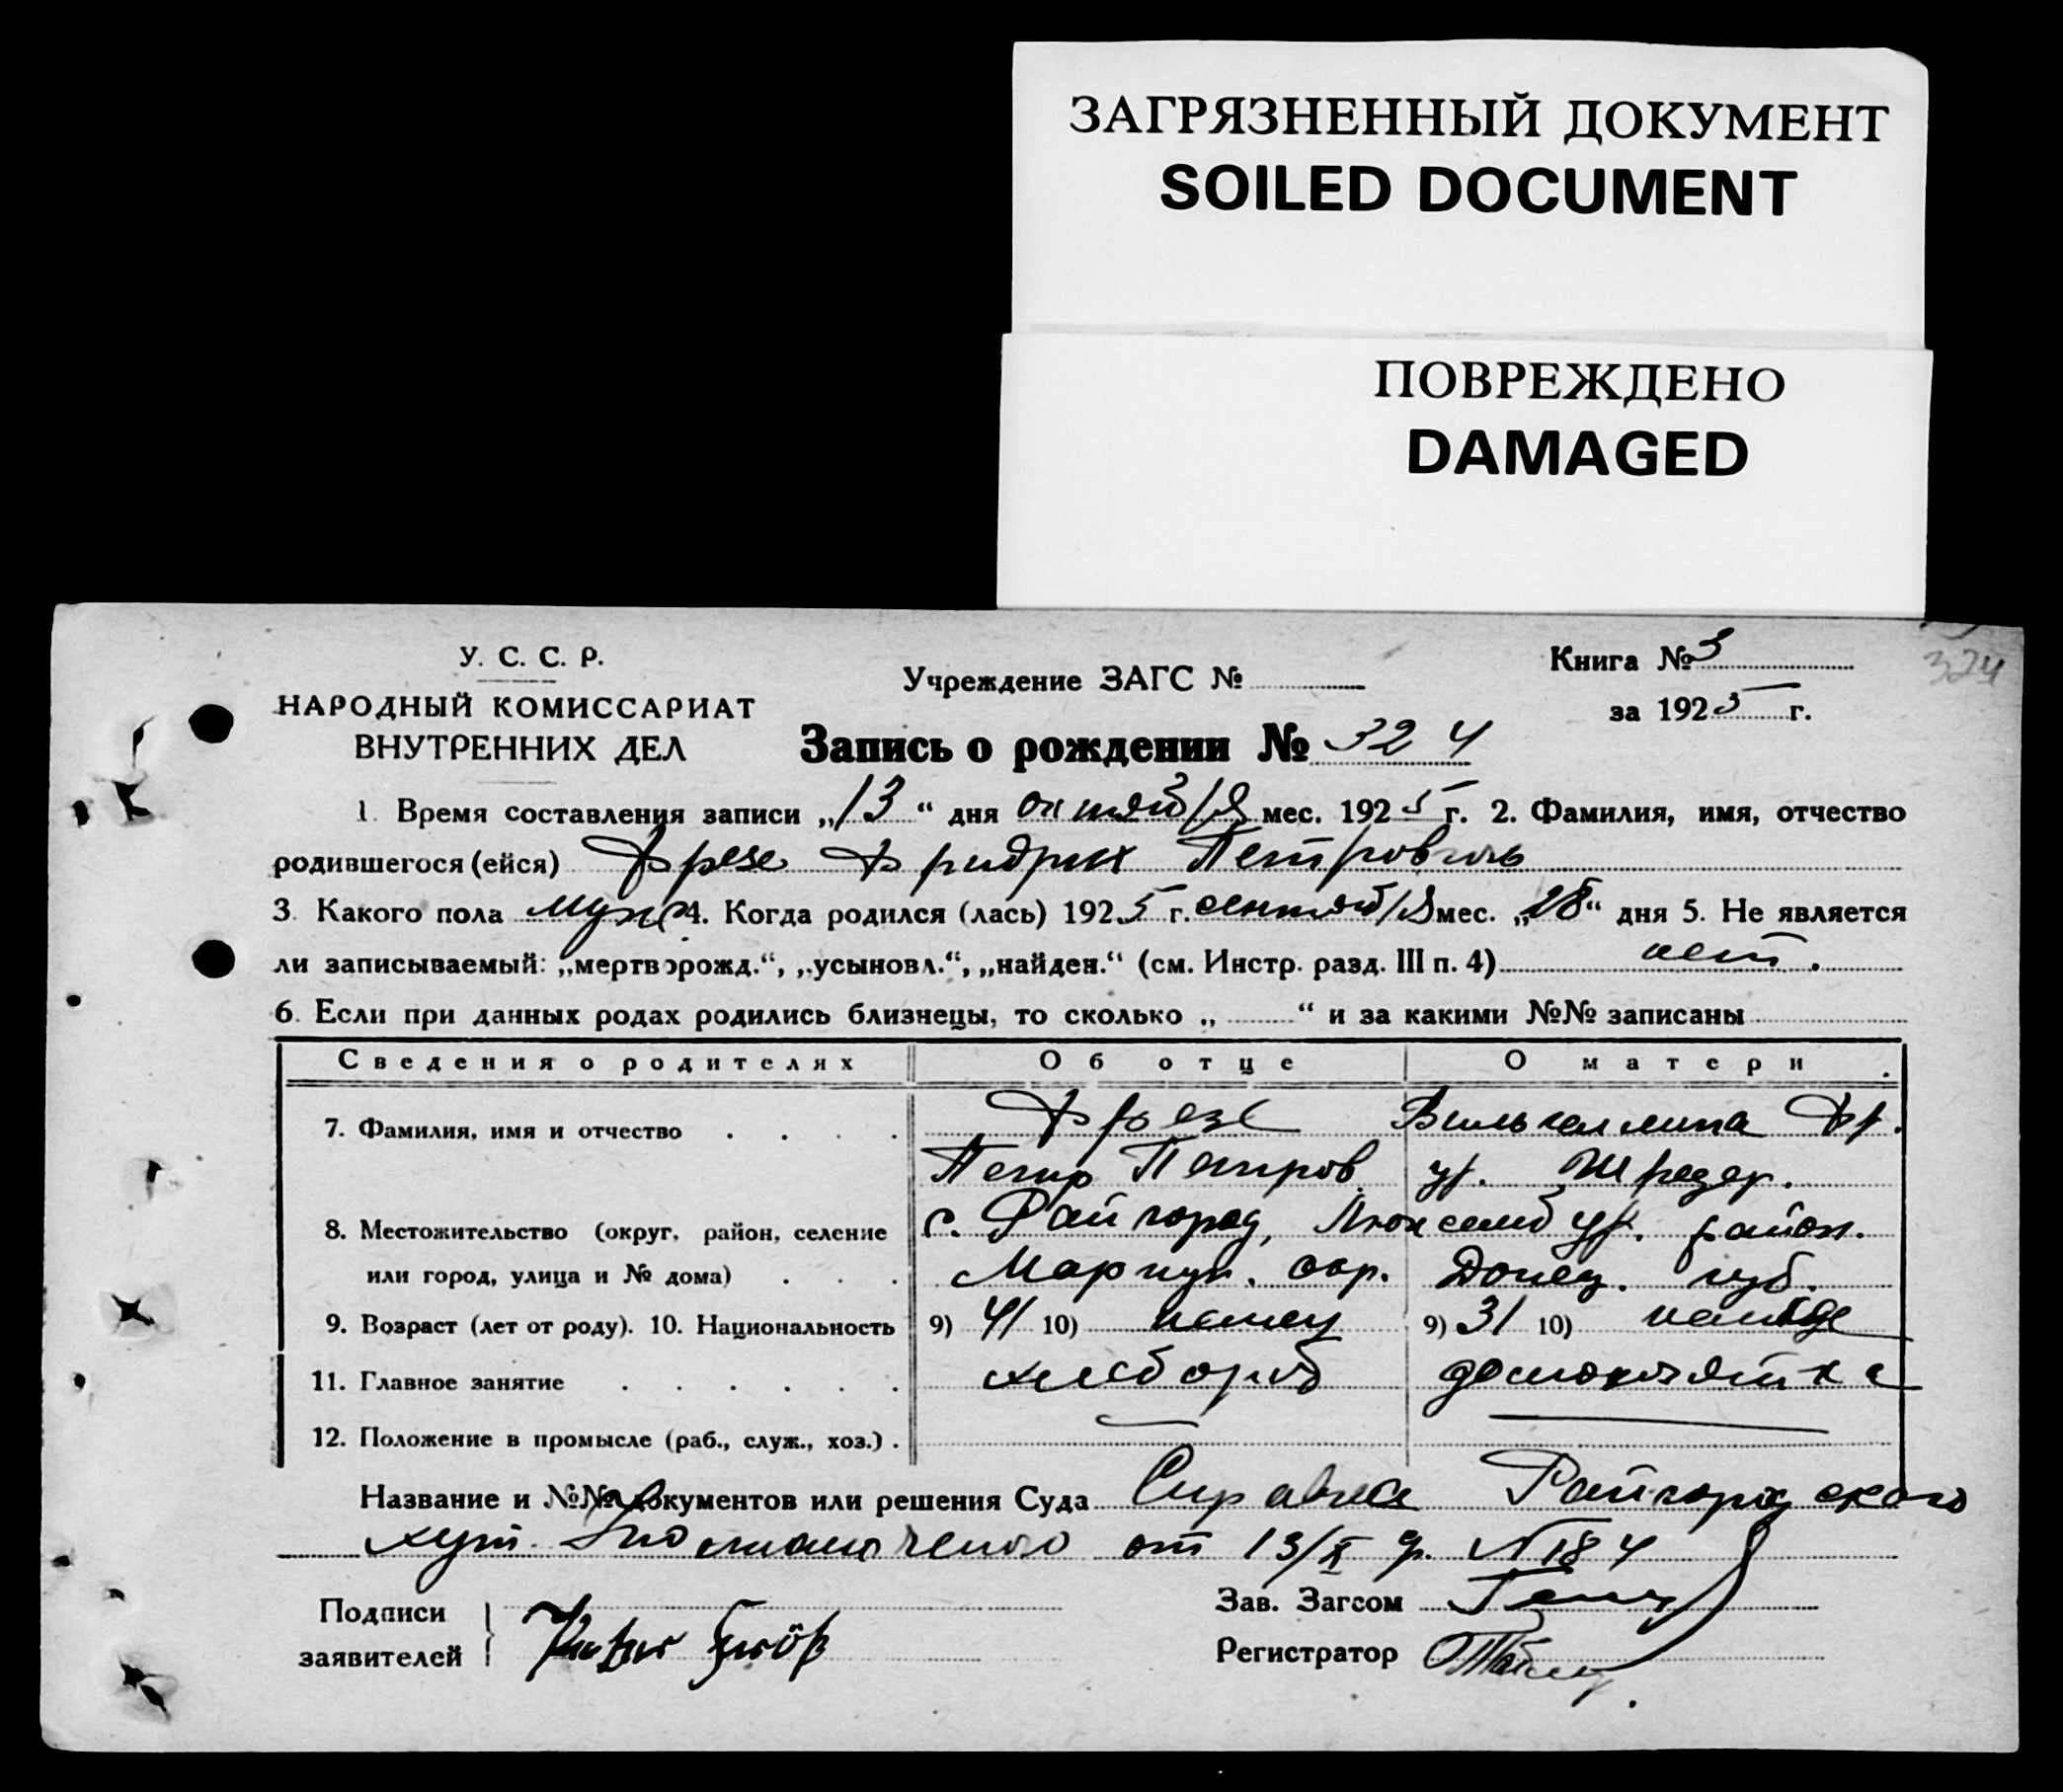 ЗАГРЯЗНЕННЫЙ ДОКУМЕНТ
SOILED DOCUMENT
ПОВРЕЖДЕНО
DAMAGED
У. С. С. Р.
НАРОДНЫЙ КОМИССАРИАТ
ВНУТРЕННИХ ДЕЛ
Учреждение ЗАГС №
Книга № 3
324
за 1925 г.
Запись о рождении № 324
1. Время составления записи „13“ дня октября мес. 1925 г. 2. Фамилия, имя, отчество
родившегося (ейся) Фрезе Фридрих Петрович
3. Какого пола муж 4. Когда родился (лась) 1925 г. сентября мес. „28“ дня 5. Не является
ли записываемый: „мертворожд.“, „усыновл.“, „найден.“ (см. Инстр. разд. III п. 4) нет.
6. Если при данных родах родились близнецы, то сколько „ “ и за какими №№ записаны
Сведения о родителях Об отце О матери
7. Фамилия, имя и отчество Фрезе Вильгельмина Фр.
Петр Петров. ур. Шредер.
8. Местожительство (округ, район, селение с. Райгород, Люксембур. район.
или город, улица и № дома) Мариуп. окр. Донец. губ.
9. Возраст (лет от роду). 10. Национальность 9) 41 10) немец 9) 31 10) немка
11. Главное занятие хлебороб домохозяйка
12. Положение в промысле (раб., служ., хоз.)
Название и №№ документов или решения Суда Справка Райгородского
хут. Уполномоченого от 13/X г. № 184
Подписи
заявителей
Зав. Загсом
Регистратор